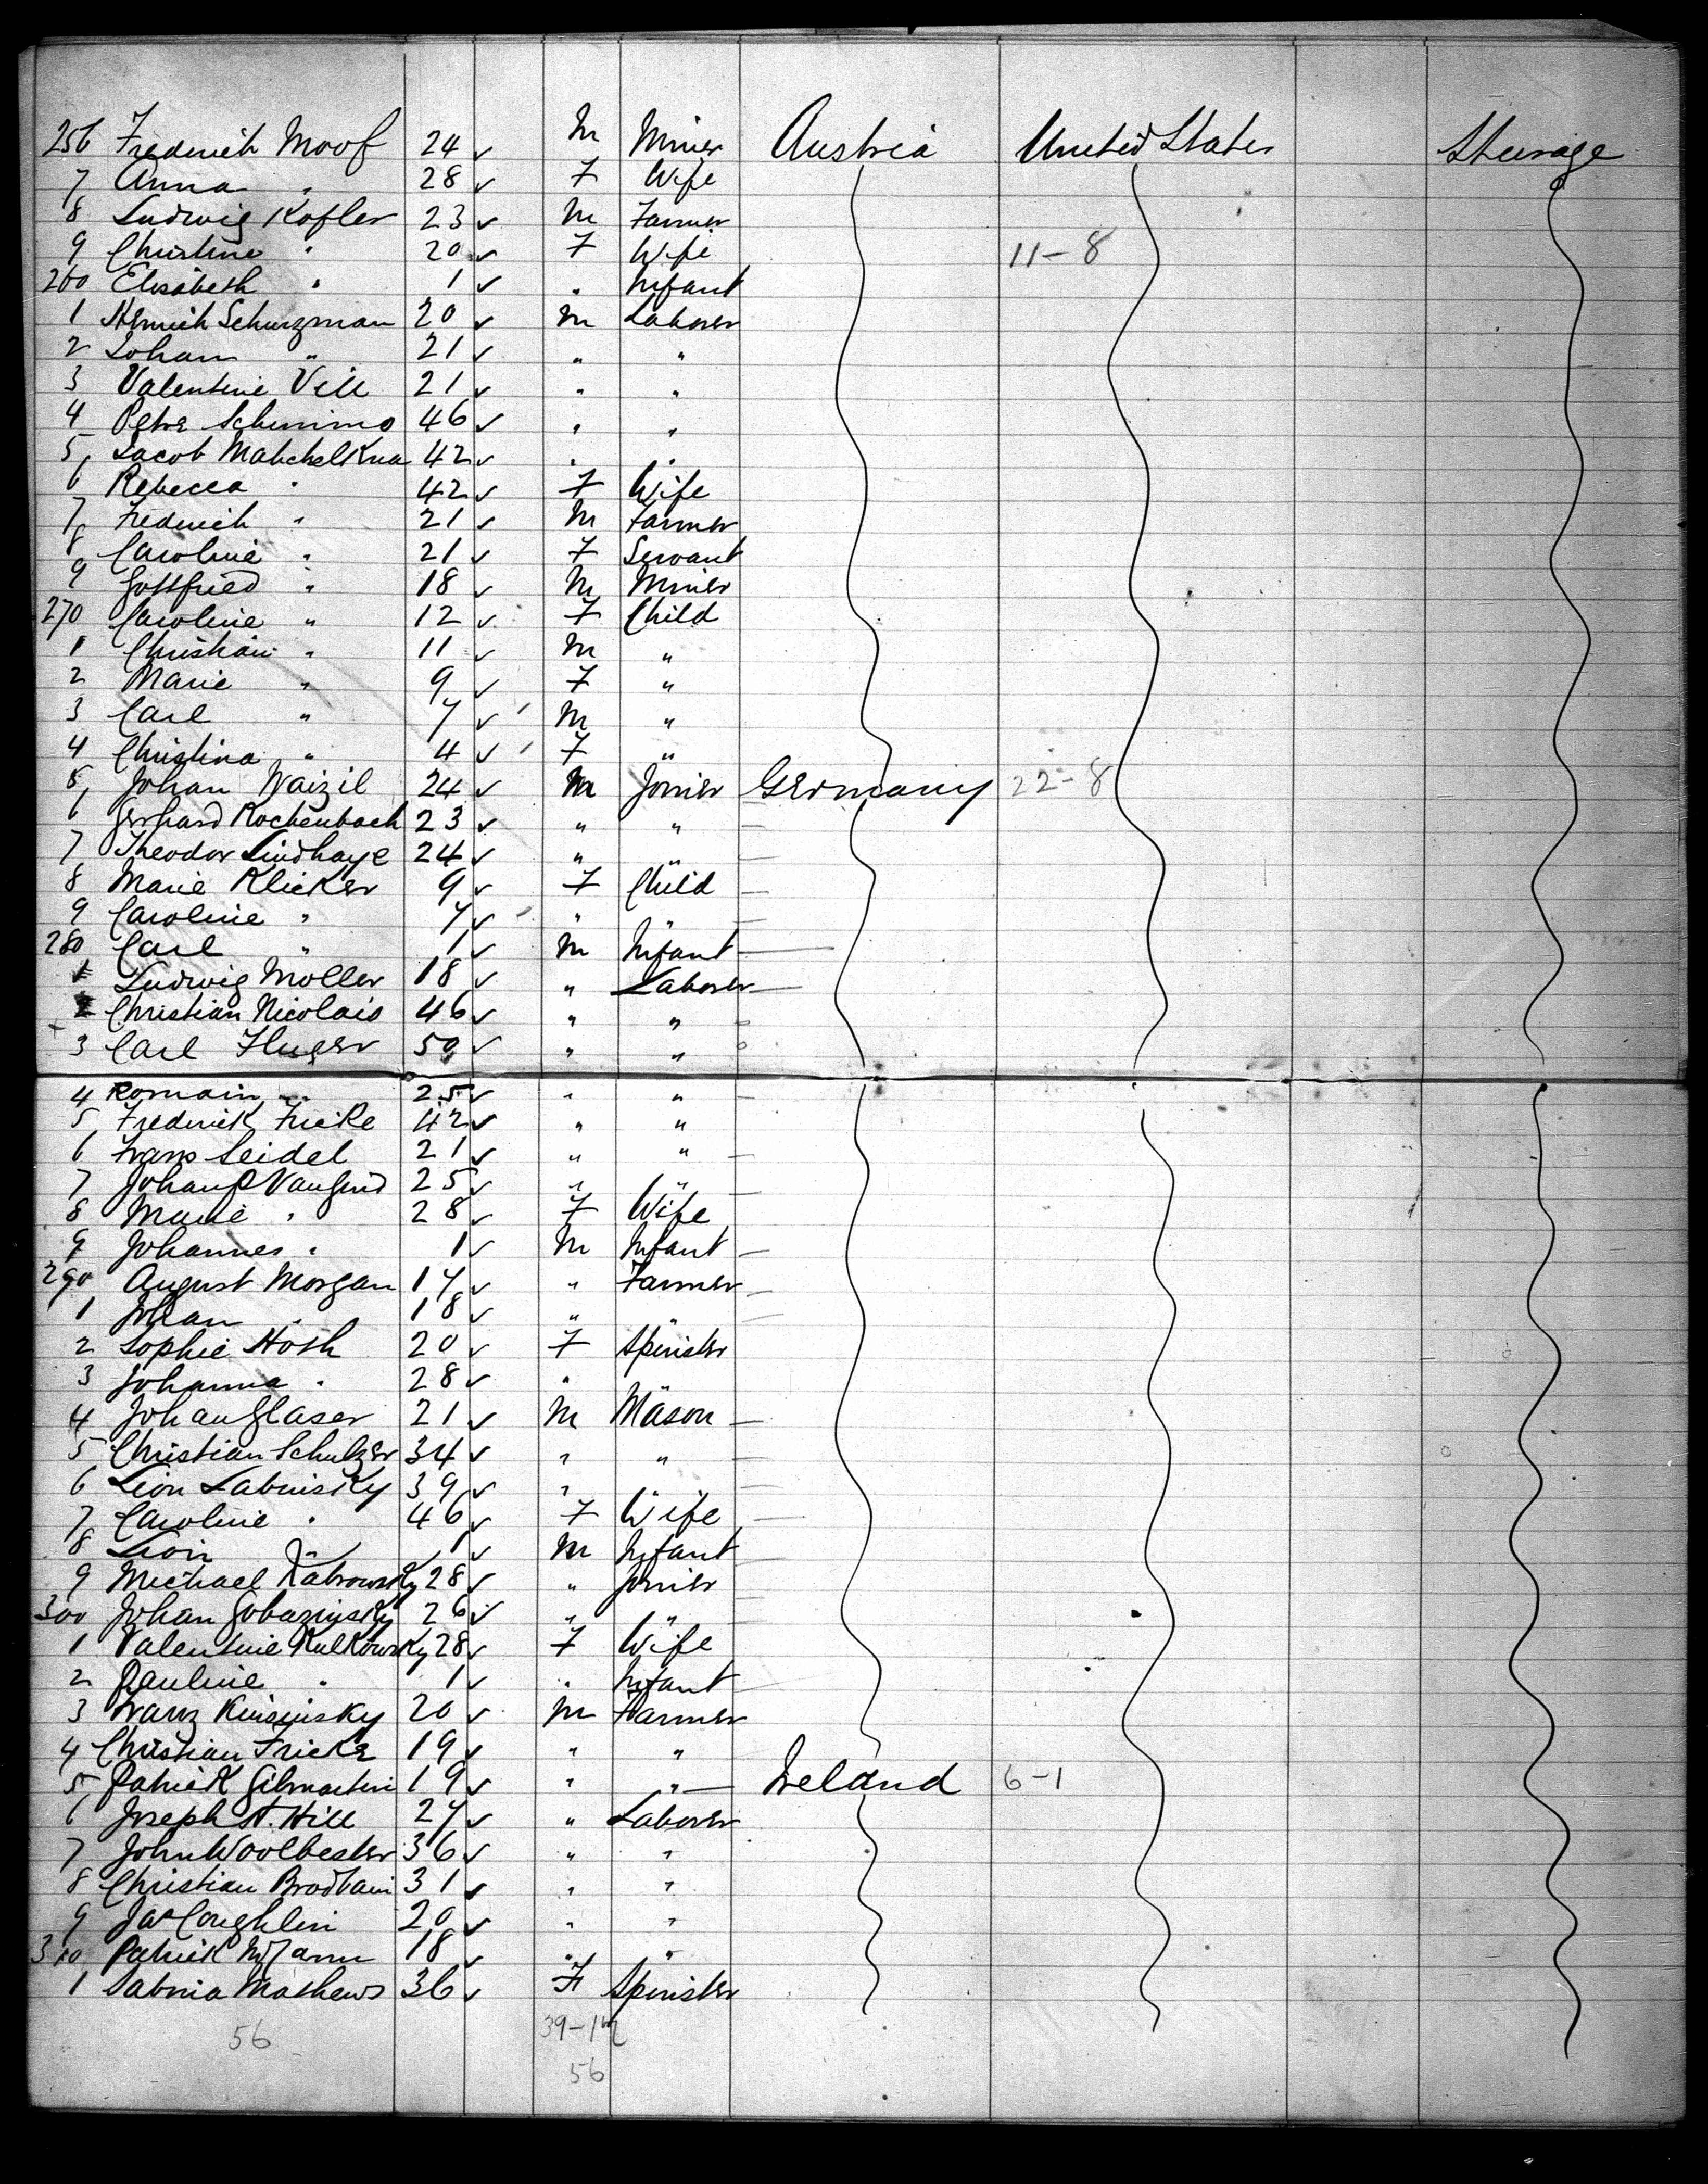 256 Frederich Moof 24 ✓ M Miner Austria United States Steerage
7 Anna " 28 ✓ F Wife
8 Ludwig Kofler 23 ✓ M Farmer
9 Christine " 20 ✓ F Wife 11-8
260 Elisabeth " 1 ✓ " Infant
1 Henrich Schurzman 20 ✓ M Laborer
2 Johan " 21 ✓ " "
3 Valentine Vill 21 ✓ " "
4 Petre Schimmo 46 ✓ " "
5 Jacob Mabchelkna 42 ✓ " "
6 Rebecca " 42 ✓ F Wife
7 Fredrich " 21 ✓ M Farmer
8 Caroline " 21 ✓ F Servant
9 Gottfried " 18 ✓ M Miner
270 Caroline " 12 ✓ F Child
1 Christian " 11 ✓ M "
2 Marie " 9 ✓ F "
3 Carl " 7 ✓ M "
4 Christina " 4 ✓ F "
5 Johan Waizil 24 ✓ M Joiner Germany 22-8
6 Gerhard Rochenbach 23 ✓ " "
7 Theodor Lindhaye 24 ✓ " "
8 Marie Klicker 9 ✓ F Child
9 Caroline " 7 ✓ "
280 Carl " 1 ✓ M Infant
1 Ludwig Moller 18 ✓ " Laborer
2 Christian Nicolais 46 ✓ " "
3 Carl Fluger 50 ✓ " "
4 Romain " 25 ✓ " "
5 Frederick Fricke 42 ✓ " "
6 Frans Seidel 21 ✓ " "
7 Johan P Vaugend 25 ✓ " "
8 Marie " 28 ✓ F Wife
9 Johannes " 1 ✓ M Infant
290 August Morgan 17 ✓ " Farmer
1 Johan " 18 ✓ " "
2 Sophie Hosh 20 ✓ F Spinster
3 Johanna " 28 ✓ "
4 Johan Glaser 21 ✓ M Mason
5 Christian Schulzer 34 ✓ " "
6 Leon Labinsky 39 ✓ "
7 Caroline " 46 ✓ F Wife
8 Leon " 1 ✓ M Infant
9 Michael Kabrowsky 28 ✓ " Joiner
300 Johan Gobazinsky 26 ✓ " "
1 Valentine Kulkowsky 28 ✓ F Wife
2 Pauline " 1 ✓ " Infant
3 Franz Kinsinsky 20 ✓ M Farmer
4 Christian Fricke 19 ✓ " "
5 Patrick Gilmartin 19 ✓ " " Ireland 6-1
6 Joseph A. Hill 27 ✓ " Laborer
7 John Woolbester 36 ✓ " "
8 Christian Brodbain 31 ✓ " "
9 Jas Coughlin 20 ✓ " "
310 Patrick McGann 18 ✓ " "
1 Sabina Mathews 36 ✓ F Spinster
56 39-17
56